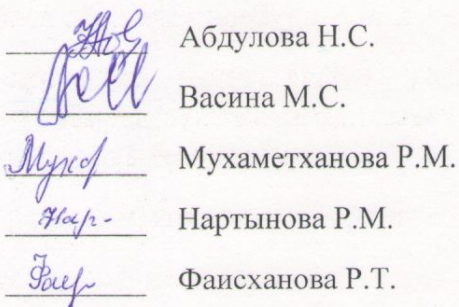 Абдулова Н.С.
Васина М.С.
Мухаметханова Р.М.
Нартынова Р.М.
Фаисханова Р.Т.